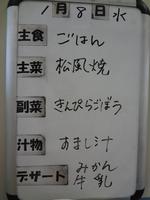 1月8日水
主食 ごはん
主菜 松風焼
副菜 きんぴらごぼう
汁物 すまし汁
デザート みかん
牛乳